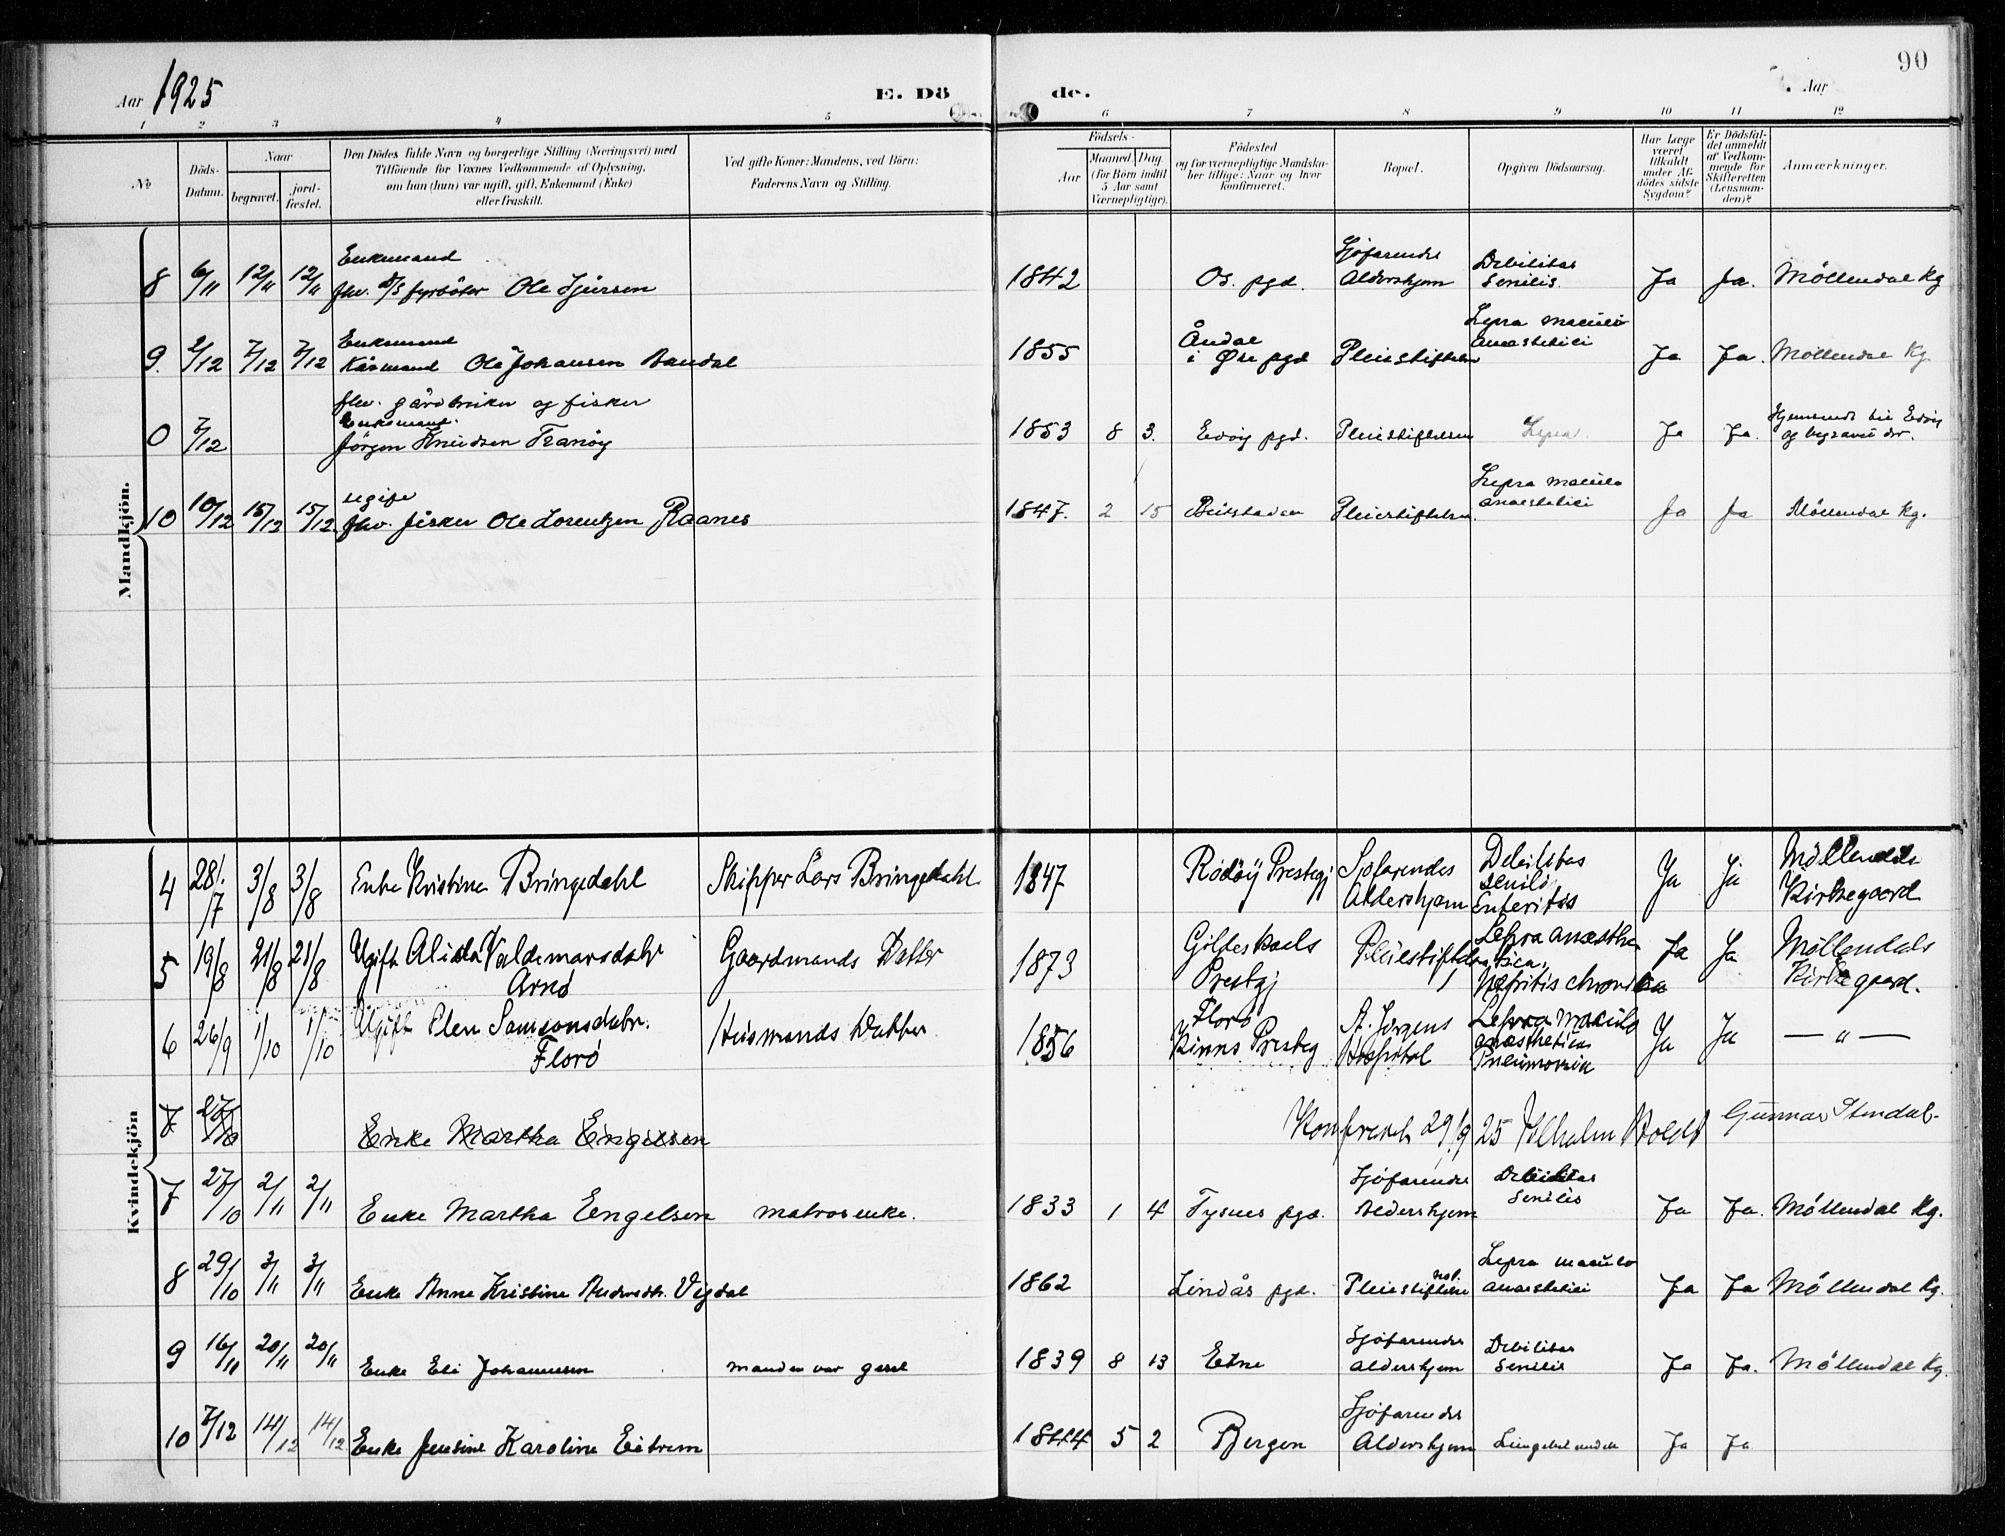 90
Aar 1925 E. Dö de. Aar
1 2 3 4 5 6 7 8 9 10 11 12
No
Döds-Datum.
Naar
begravet.
jord-fæstet.
Den Dödes fulde Navn og borgerlige Stilling (Næringsvei) med
Tilföiende for Voxnes Vedkommende af Oplysning,
om han (hun) var ugift, gift, Enkemand (Enke)
eller fraskilt.
Ved gifte Koner: Mandens, ved Börn:
Faderens Navn og Stilling.
Födsels-
Aar
Maaned. Dag.
(for Börn indtil
5 Aar samt
Værnepligtige).
Födested
og for værnepligtige Mandska-
ber tillige: Naar og hvor
konfirmeret.
Bopæl.
Opgiven Dödsaarsag.
Har Læge
været
tilkaldt
under Af-
dödes sidste
Sygdom?
Er Dödsfal-
det anmeldt
af Vedkom-
mende for
Skifteretten
(Lensman-
den)?
Anmærkninger.
Mandkjön.
Enkemand
8 6/11 12/11 12/11 fhv. D/S fyrböter Ole Sjursen 1842 Os. pgd. Sjöfarendes Aldershjem Debilitas Senilis. Ja Ja. Möllendal Kg
Enkemand
9. 2/12 7/12 7/12 Kårmand Ole Johansen Aandal 1855 Åndal i Øre pgd Pleiestiftelsen Lepra maculo anaestetici Ja Ja. Möllendal Kg.
fhv. gårdbruker og fisker
Enkemand.
0 7/12 Jörgen Knudsen Tranöy 1853 8 3. Edöy pgd. Pleiestiftelsen Lepra Ja Ja. Hjemsendt til Edöy og begravet der.
ugift
10 10/12 15/12 15/12 fhv. fisker Ole Lorentzen Raanes 1847. 2 15 Beitstaden Pleiestiftelsen. Lepra maculo anaestetici Ja Ja Möllendal Kg.
Kvindekjön
4 28/7 3/8 3/8 Enke Kristine Bringedahl Skipper Lars Bringedahl 1847 Rödöy Prestegj Sjöfarendes Aldershjem Debilitas senilis Enteritis Ja Ja Möllendals Kirkegaard
5 19/8 21/8 21/8 Ugift Alida Valdemarsdatr Arnø Gaardmands Datter 1873 Gildeskaals Prestgj Pleiestiftels Lepra anæsthetica, Nefritis chronica Ja Ja Möllendals Kirkegaard.
6 26/9 1/10 1/10 Ugift Elen Samsonsdatr. Florø Husmands Datter 1856 Florø Kinns Presteg St. Jørgens Hospital Lepra maculo anæsthetica Pneumonia Ja Ja — " —
7 27/10 Enke Martha Engelsen Konfereret 29/9 25 Vilhelm Koldt Gunnar Stendal
7 27/10 2/11 2/11 Enke Martha Engelsen matrosenke. 1833 1 4 Tysnes pgd. Sjöfarendes Aldershjem Debilitas Senilis Ja Ja. Möllendal Kg.
8 29/10 3/11 3/11 Enke Anne Kristine Andersdtr. Vigdal 1862 Lindås pgd. Pleiestiftelsen Lepra maculo anaestetici Ja Ja Möllendal Kg.
9 16/11 20/11 20/11 Enke Eli Johannesen manden var gesel 1839 8 13 Etne Sjöfarendes Aldershjem Debilitas Senilis Ja Ja. Möllendal Kg.
10 7/12 14/12 14/12 Enke Jensine Karoline Eitrem 1844 5 2 Bergen Sjöfarendes Aldershjem Lungebetendelse Ja Ja